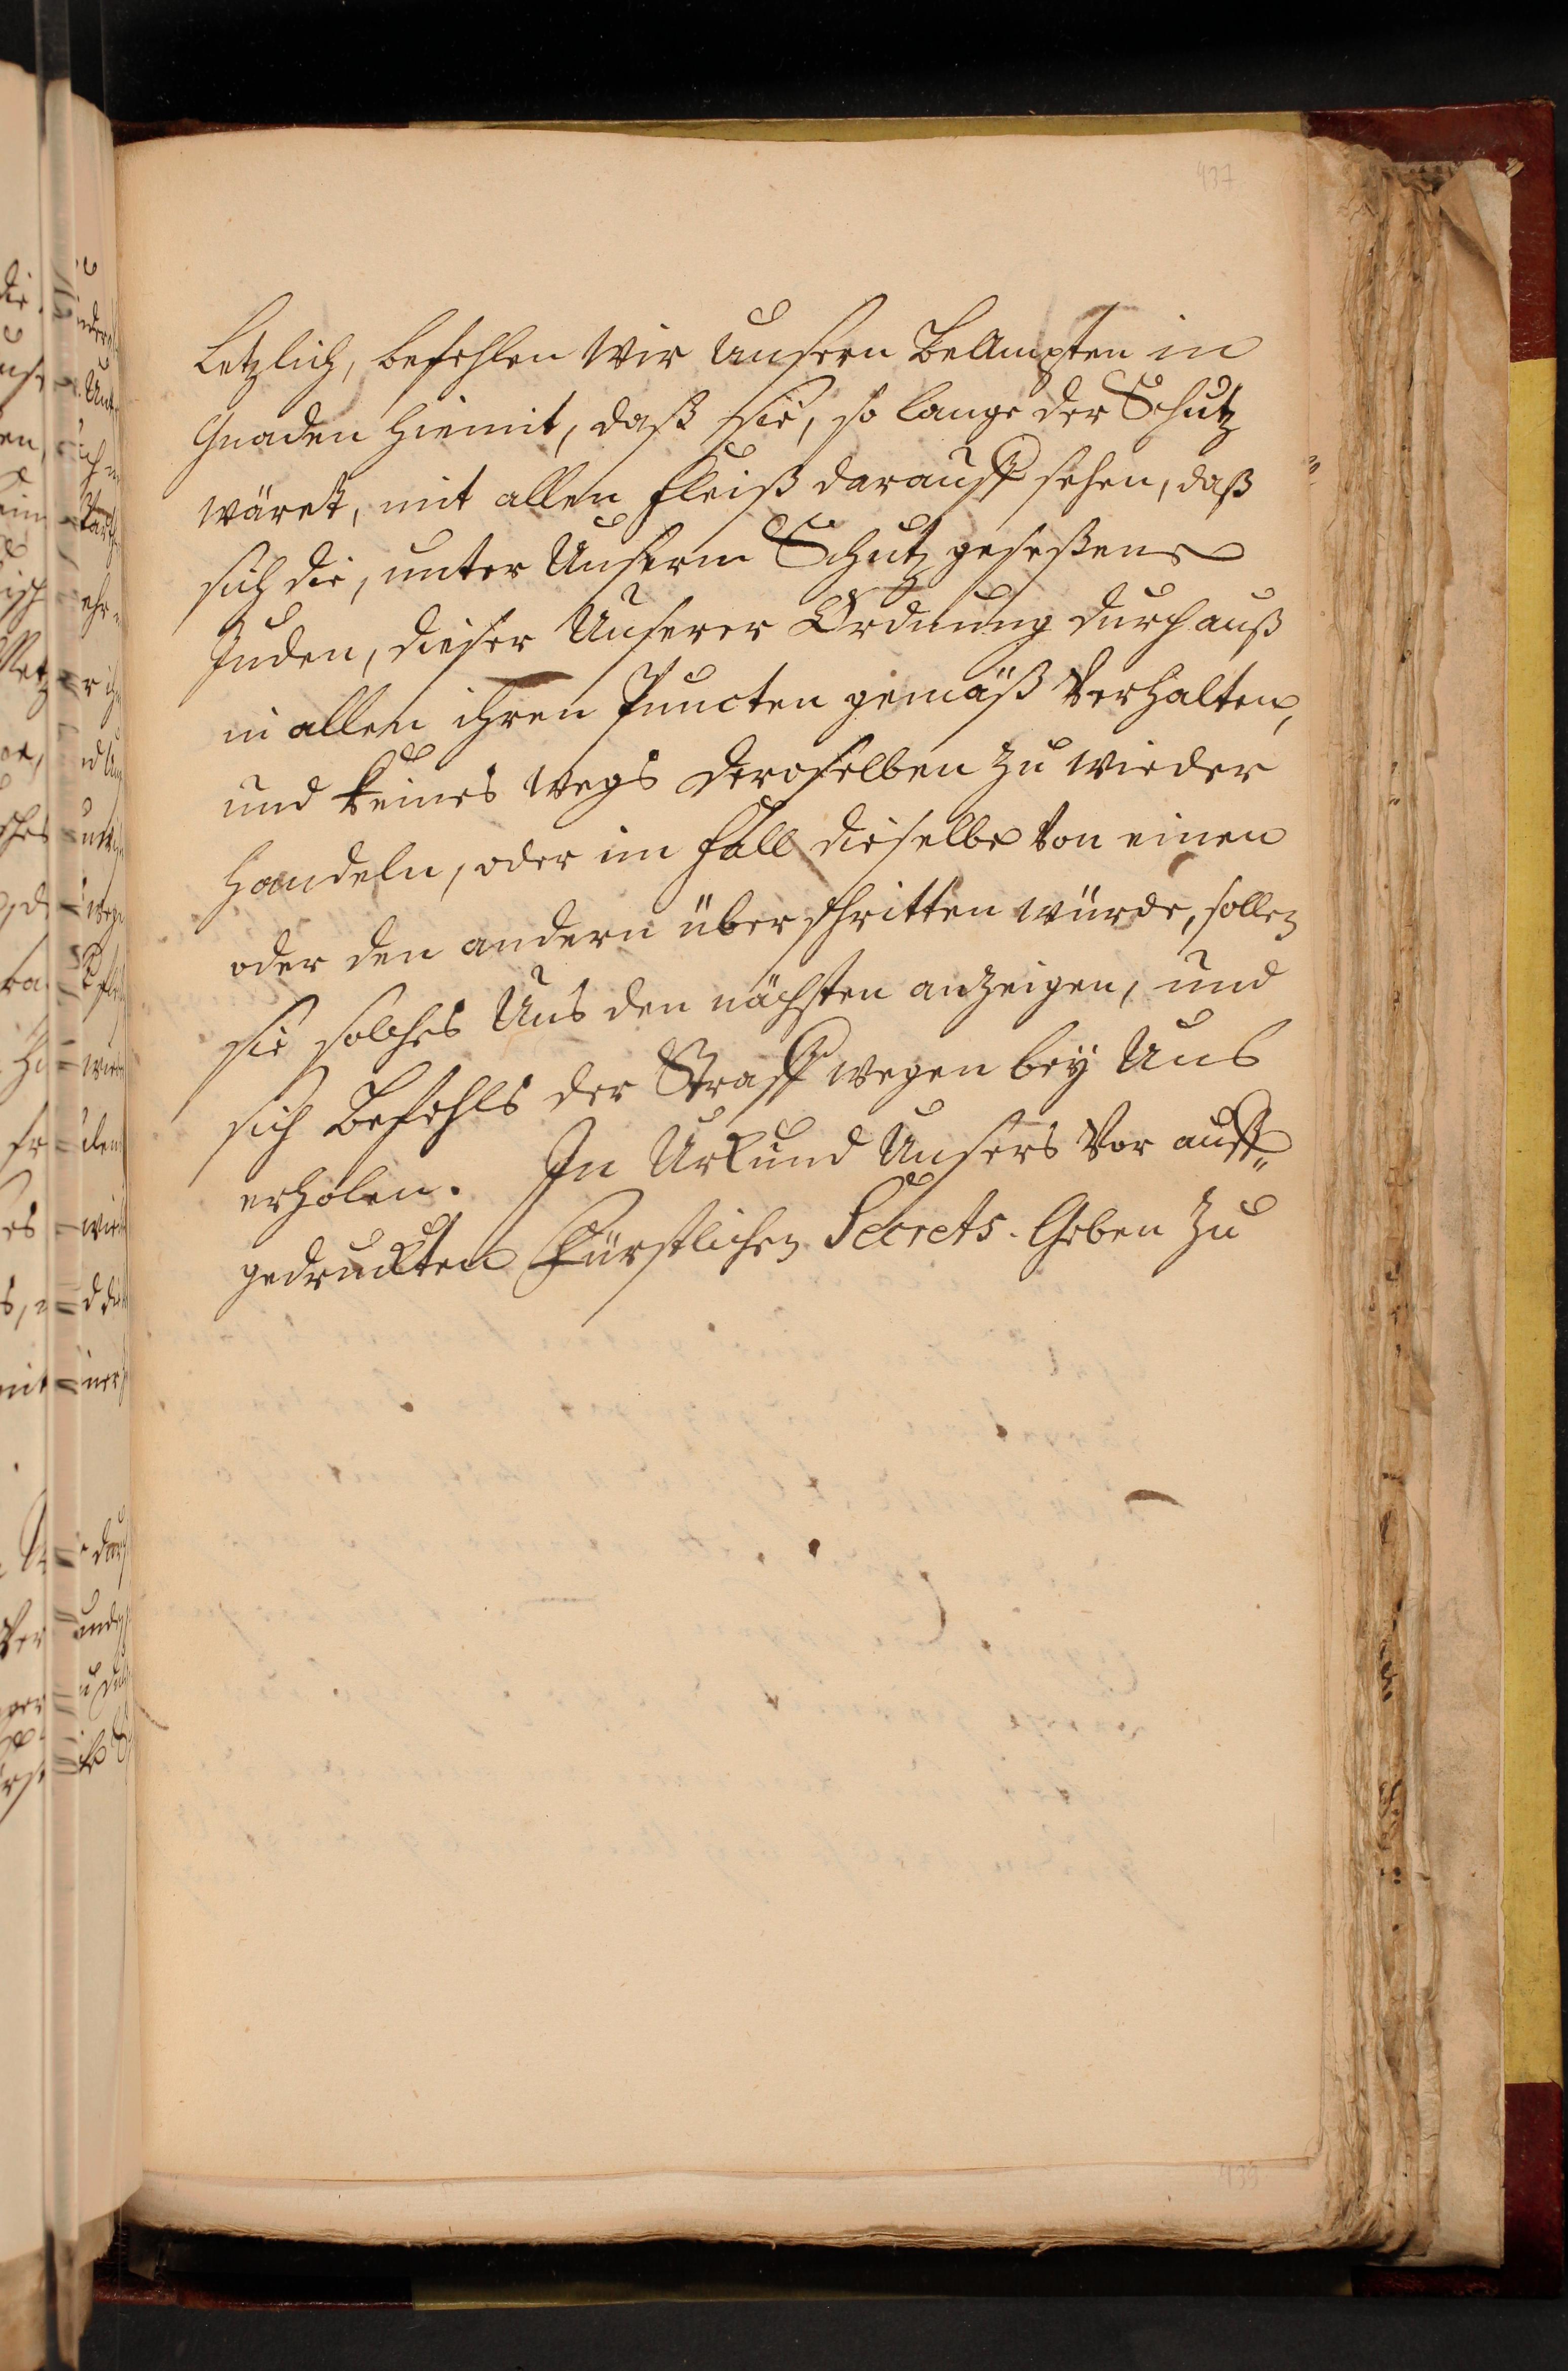 437
Letzlich, befehlen Wir Unsern BeAmpten in
Gnaden hiemit, daß sie, so lange der Schutz
wäret, mit allen fleiß darauff sehen, daß
sich die, unter Unserm Schutz geseßene
Juden, dieser Unserer Ordnung durchauß
in allen ihren Puncten gemäß Verhalten,
und keines wegs deroselben zu wieder
handeln, oder im fall dieselbe von einen
oder den andern überschritten würde, sollen
sie solches Uns den nächsten anzeigen, und
sich Befehls der Straff wegen bey Uns
erholen. In Urkund Unsers Vor auff„
gedruckten Fürstlichen Secrets. Geben zu
439